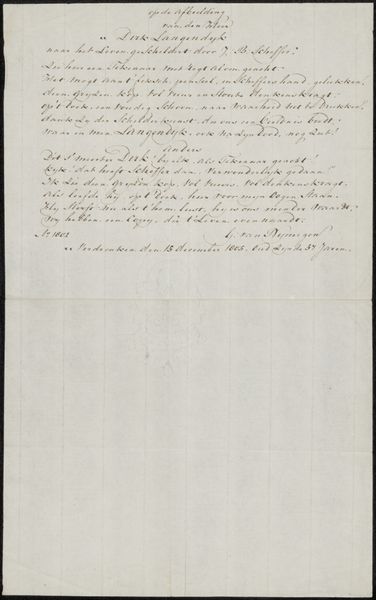 op de Afbeelding
van den Heer
„ Dirk Langendyk
naar het Leven geschildert door J. B. Scheffer.
Zie hier een Tekenaar met regt alom geacht
Het mogt aan 't fiksch penseel, in Scheffers hand, gelukken!
dien Gryzen kop, vol vuur en Denkenskragt
op 't doek, een voudig Schoon, naar Waarheid uit te Drukken!
dank zy de Schilderkunst, die ons een beeldnis bied:
waar in men Langendyk, ook na zyn dood, nog ziet!
anders
Dit 's meester Dirk, by elk, als Tekenaar geacht!
kyk! dat heeft Scheffer dan, verwonderlyk gedaan!
Ik Zie dien Gryzen kop, vol vuur, vol denkenskragt,
als leefde hy op 't doek, hier voor myn oogen staan.
Hy sterft nu als 't hem lust, hy is ons minder waardt:
wy hebben een Copy, die 't Leven evenaardt.
Ao 1802
G. van Nymegen
„ Verdronken den 15 december 1805. Oud zynde 57 Jaren.